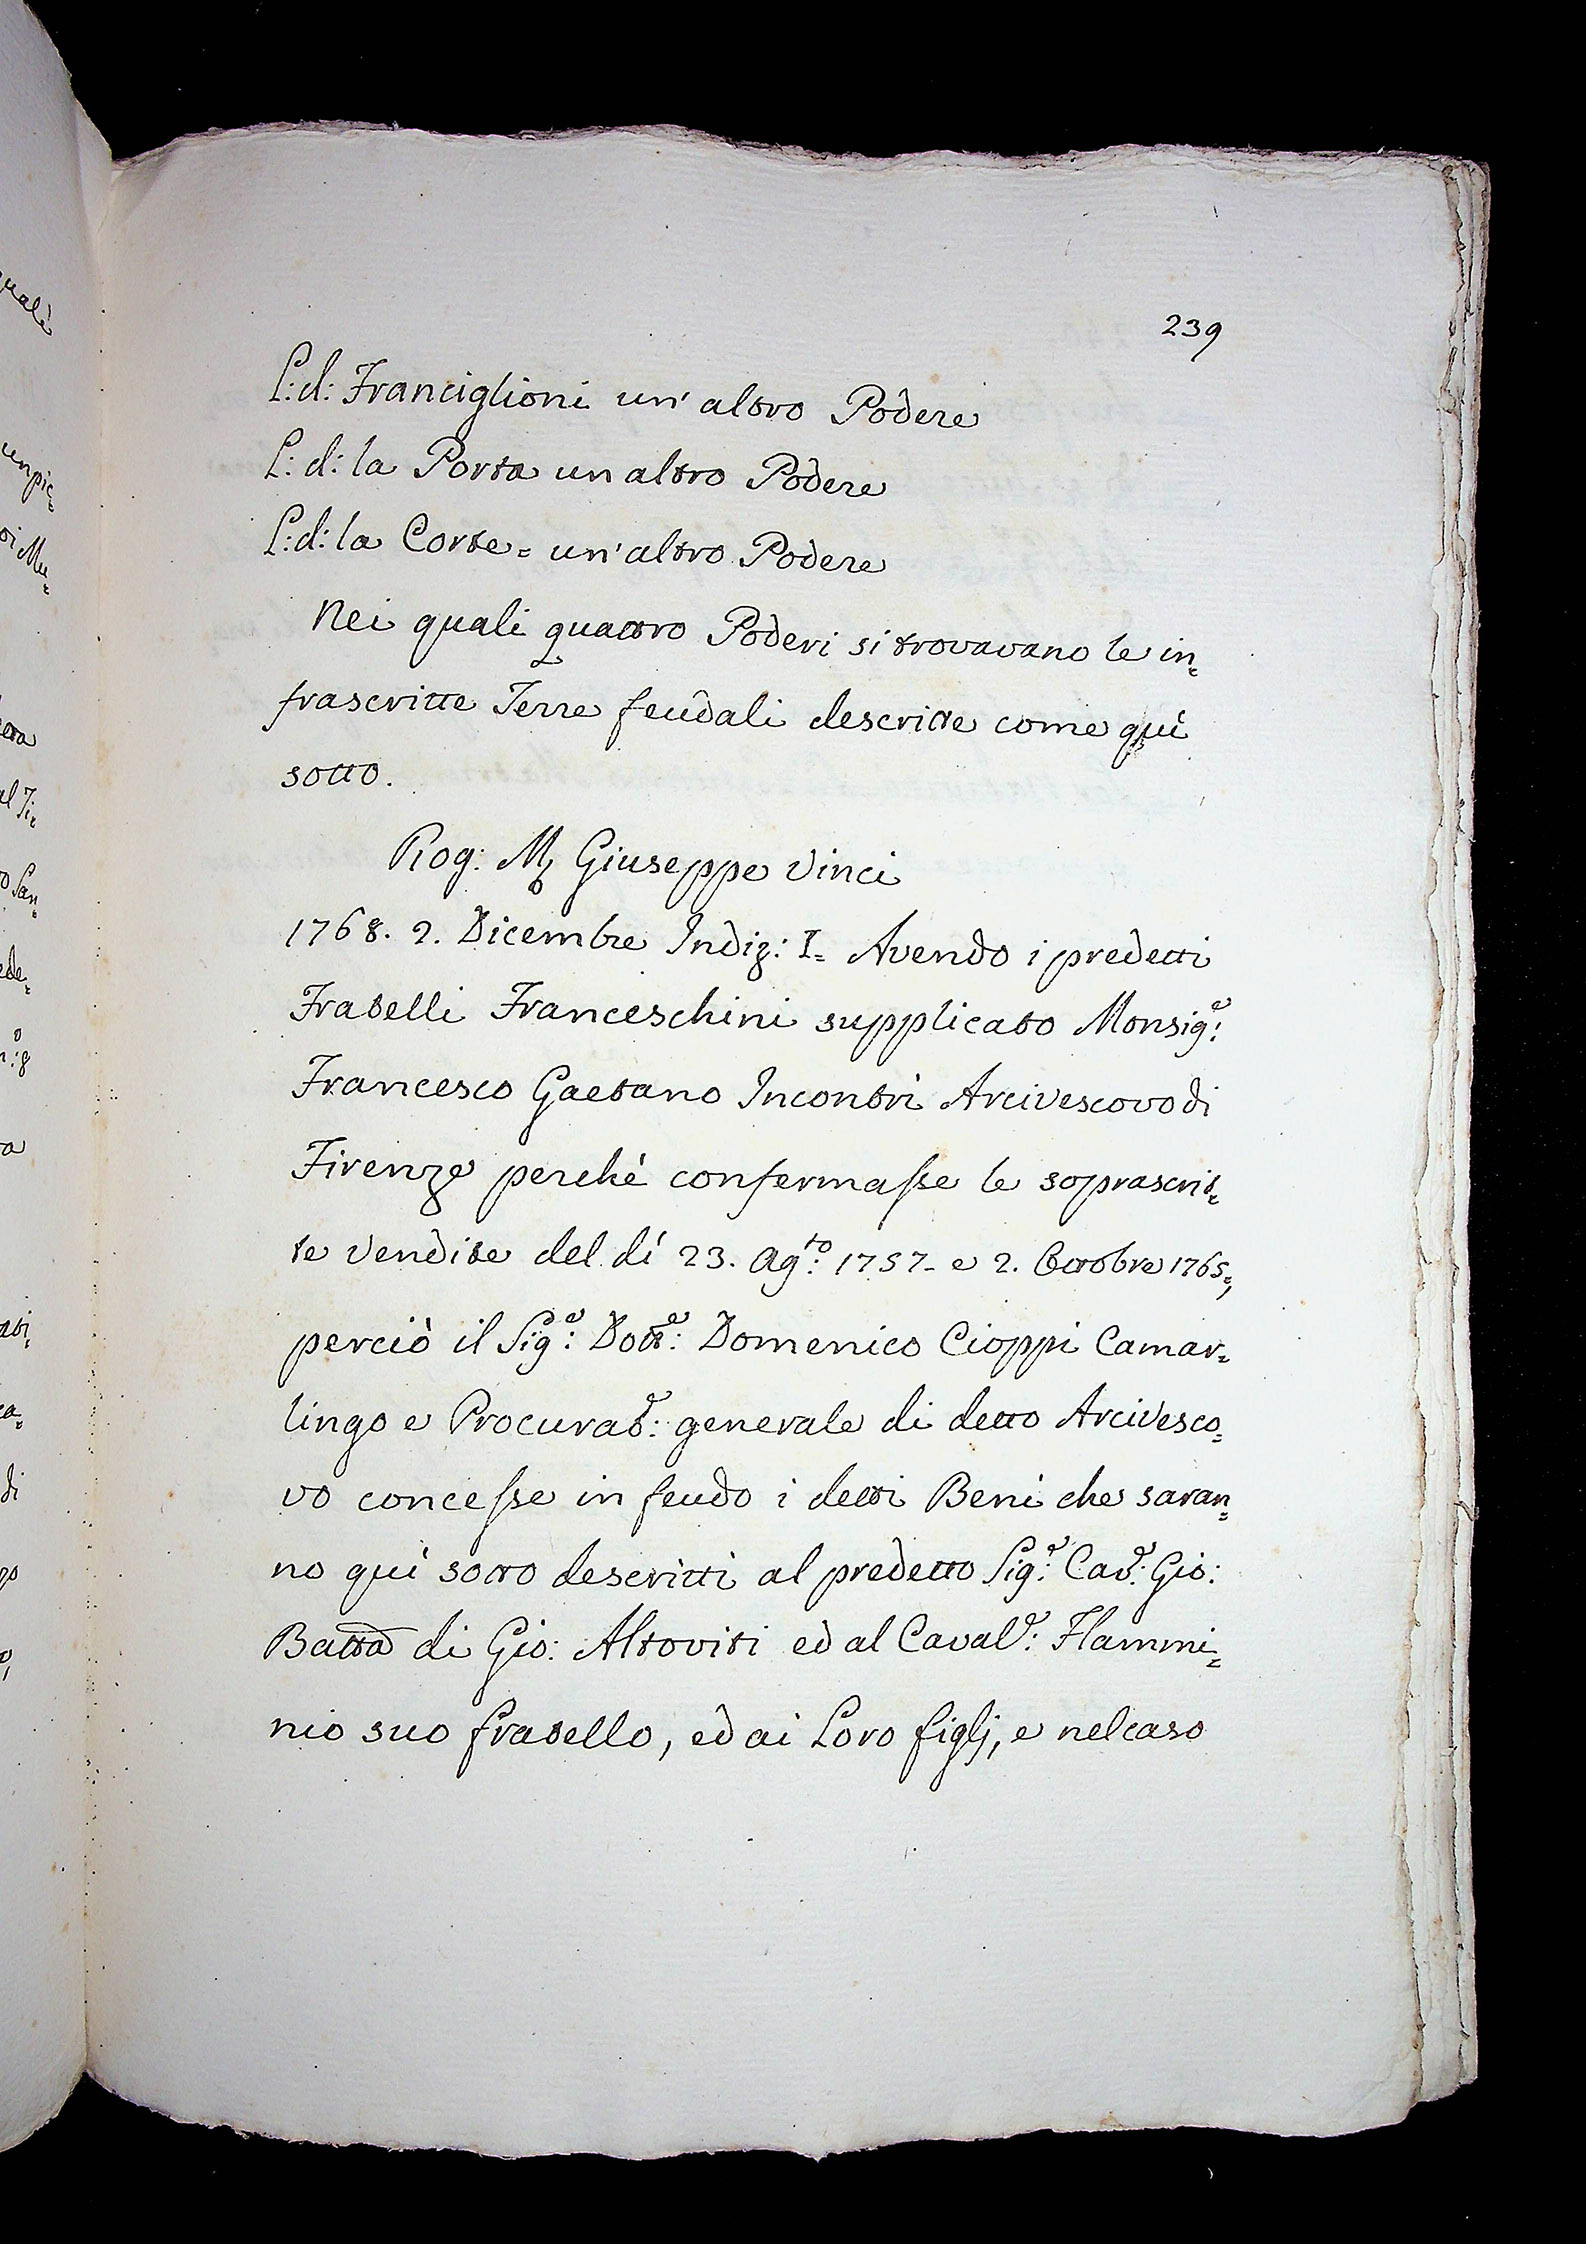 239
L: d: Franciglioni un' altro Podere
L: d: la Porta un altro Podere
L: d: la Corte = un' altro Podere
Nei quali quattro Poderi si trovavano le in=
frascritte Terre feudali descritte come quì
sotto.
Rog: Mr Giuseppe Vinci
1768. 2. Dicembre Indiz: I= Avendo i predetti
Fratelli Franceschini supplicato Monsig.e:
Francesco Gaetano Incontri Arcivescovo di
Firenze perchè confermasse le soprascrit=
te vendite del dì 23. Ag.to: 1757- e 2. Ottobre 1765=,
perciò il Sig.e: Dott.e: Domenico Cioppi Camar=
lingo e Procurat.e: generale di detto Arcivesco=
vo concesse in feudo i detti Beni che saran=
no quì sotto descritti al predetto Sig.e: Cav.e: Gio:
Batta di Gio: Altoviti ed al Caval.e: Flammi=
nio suo fratello, ed ai Loro figlj, e nel caso
qualè
un pic=
oi Mu=
al Ti=
o San=
ede=
di